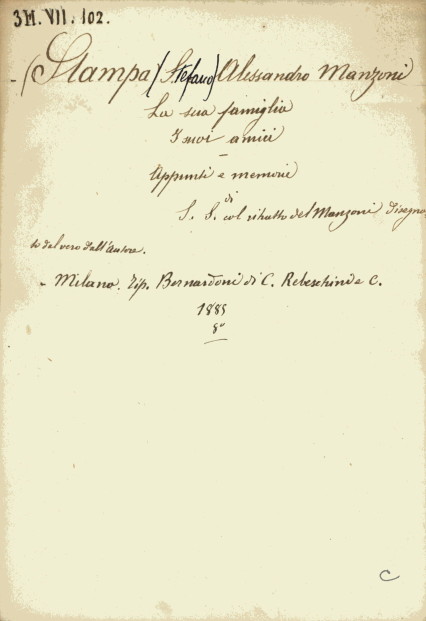 3M.VII.102.
- (Stampa) (Stefano) Alessandro Manzoni
La sua famiglia
I suoi amici
-
Appunti e memorie
di
S. S. col ritratto del Manzoni disegna
to dal vero dall'autore.
- Milano. Tip. Bernardoni di C. Rebeschini e C.
1885
8°
C